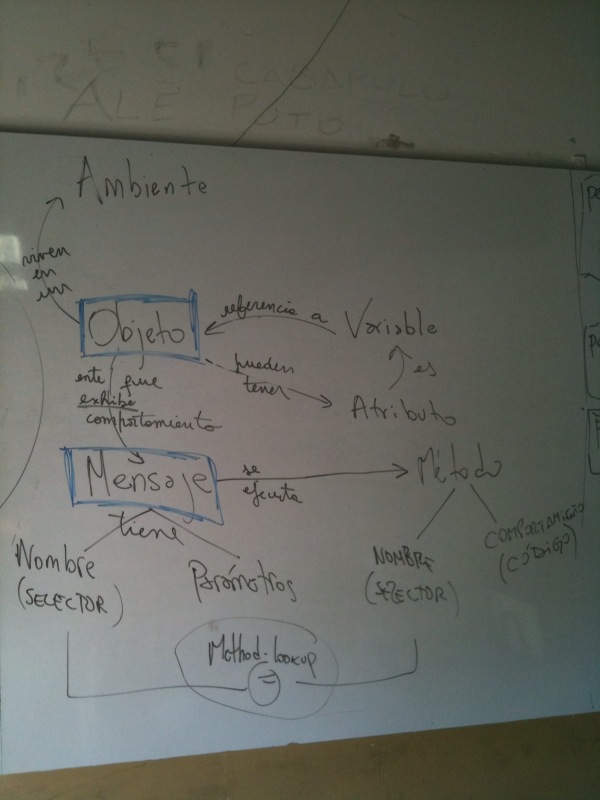 ALE
PUTO
Ambiente
viven
en
un
Objeto
referencia a
Variable
pueden
tener
es
Atributo
ente que
exhibe
comportamiento
Mensaje
se
ejecuta
Método
tiene
Nombre
(SELECTOR)
Parámetros
NOMBRE
(SELECTOR)
COMPORTAMIENTO
(CÓDIGO)
Method-lookup
=